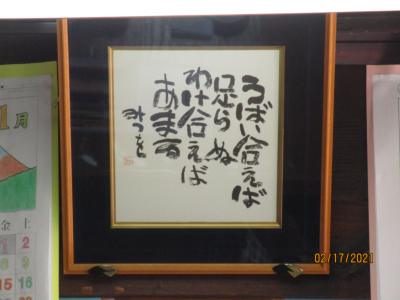 うばい合えば
足らぬ
わけ合えば
あまる
みつを
1月
金 土
1 2
8 9
15 16
22
02/17/2021